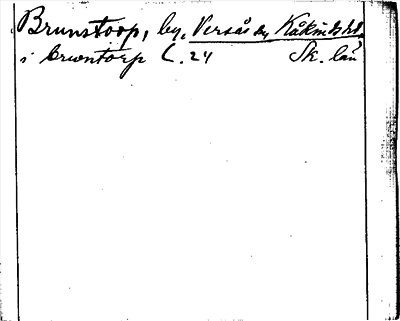 Brunstorp, by, Versås sn, Kåkinds hd.
i bruntorp C. 24 Sk. län